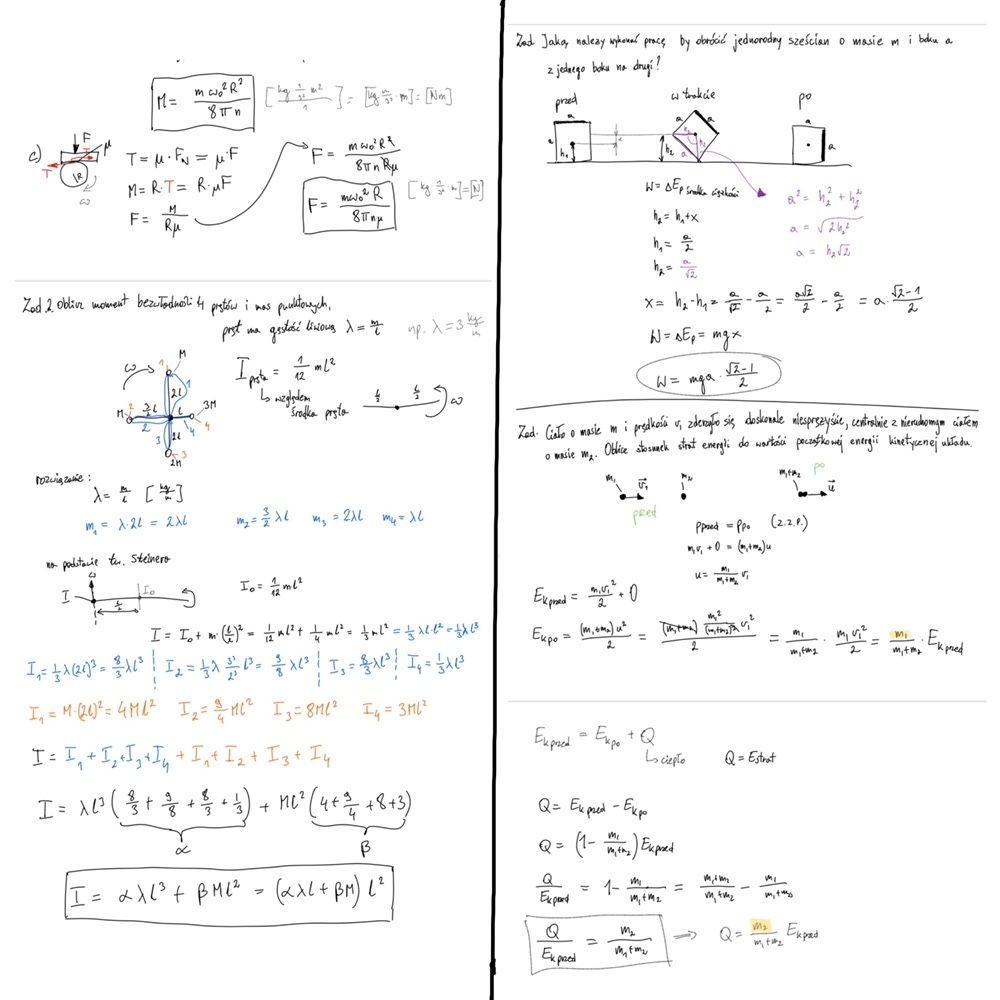 M = mω₀²R² / 8πn [kg 1/s² m² / 1] = [kg m/s² · m] = [Nm]
c)
F
μ
T
T
R
ω
T = μ · F_N = μ · F
M = R · T = R · μF
F = M / Rμ
F = mω₀²R² / 8πn Rμ
F = mω₀²R / 8πnμ [kg · 1/s² · m] = [N]
Zad 2 Oblicz moment bezwładności 4 prętów i mas punktowych,
pręt ma gęstość liniową λ = m/l np. λ = 3 kg/m
ω
M
1
1
2l
M
2
3/2 l
l
3M
2
4
4
3
2l
3
2M
I pręta = 1/12 ml²
↳ względem
środka pręta
l/2
l/2
ω
rozwiązanie:
λ = m/l [kg/m]
m₁ = λ · 2l = 2λl m₂ = 3/2 λl m₃ = 2λl m₄ = λl
na podstawie tw. Steinera
ω
I
I₀
l/2
I₀ = 1/12 ml²
I = I₀ + m · (l/2)² = 1/12 ml² + 1/4 ml² = 1/3 ml² = 1/3 λl · l² = 1/3 λl³
I₁ = 1/3 λ(2l)³ = 8/3 λl³ I₂ = 1/3 λ 3³/2³ l³ = 9/8 λl³ I₃ = 8/3 λl³ I₄ = 1/3 λl³
I₁ = M · (2l)² = 4Ml² I₂ = 9/4 Ml² I₃ = 8Ml² I₄ = 3Ml²
I = I₁ + I₂ + I₃ + I₄ + I₁ + I₂ + I₃ + I₄
I = λl³ (8/3 + 9/8 + 8/3 + 1/3) + Ml² (4 + 9/4 + 8 + 3)
α
β
I = αλl³ + βMl² = (αλl + βM) l²
Zad. Jaką należy wykonać pracę by obrócić jednorodny sześcian o masie m i boku a
z jednego boku na drugi?
przed
w trakcie
po
a
a
h₁
x
h₂
a
a
a
a
a
W = ΔEp środka ciężkości
h₂ = h₁ + x
h₁ = a/2
h₂ = a/√2
a² = h₂² + h₂²
a = √2h₂²
a = h₂√2
x = h₂ - h₁ = a/√2 - a/2 = a√2/2 - a/2 = a · √2-1/2
W = ΔEp = mgx
W = mga · √2-1/2
Zad. Ciało o masie m i prędkości v₁ zderzyło się doskonale niesprężyście, centralnie z nieruchomym ciałem
o masie m₂. Oblicz stosunek strat energii do wartości początkowej energii kinetycznej układu.
m₁
v₁
m₂
przed
m₁+m₂
po
u
pprzed = ppo (z.z.p.)
m₁v₁ + 0 = (m₁+m₂)u
u = m₁/m₁+m₂ v₁
Ek przed = m₁v₁²/2 + 0
Ek po = (m₁+m₂) u²/2 = (m₁+m₂) m₁²/(m₁+m₂)² v₁² / 2 = m₁/m₁+m₂ · m₁v₁²/2 = m₁/m₁+m₂ · Ek przed
Ek przed = Ek po + Q
↳ ciepło
Q = Estrat
Q = Ek przed - Ek po
Q = (1 - m₁/m₁+m₂) Ek przed
Q/Ek przed = 1 - m₁/m₁+m₂ = m₁+m₂/m₁+m₂ - m₁/m₁+m₂
Q/Ek przed = m₂/m₁+m₂ ⟹ Q = m₂/m₁+m₂ Ek przed